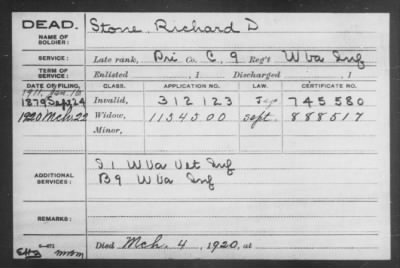 DEAD. Stone, Richard D
NAME OF SOLDIER:
SERVICE: Late rank, Pri Co. C, 9 Reg't W Va Inf
TERM OF SERVICE: Enlisted , 1 Discharged , 1
DATE OF FILING. CLASS. APPLICATION NO. LAW. CERTIFICATE NO.
1879 Sep 24 Invalid, 312123 745580
1920 Mch 22 Widow, 1154500 Sept. 888517
Minor,
ADDITIONAL SERVICES: S. 1 W Va Vet Inf
B 9 W Va Inf
REMARKS:
Died Mch. 4, 1920, at